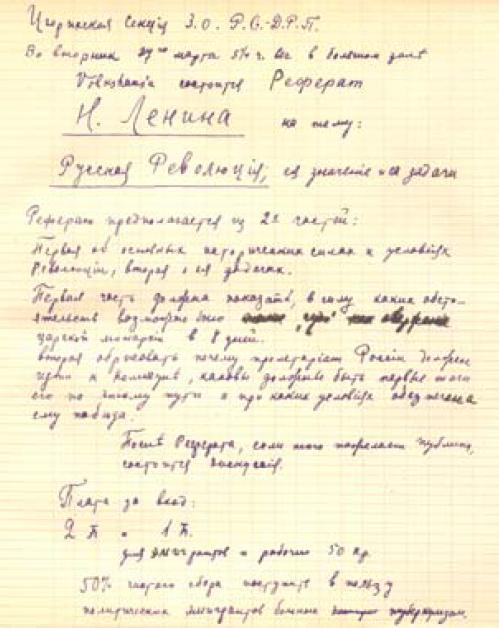 Цюрихская Секція З.О. Р.С.-Д.Р.П.
Во вторник 27го марта 5½ ч. в большом залѣ
Volkshaus'а состоится Реферат
Н. Ленина на тему:
Русская Революція, ея значеніе и ея задачи
Реферат предполагается из 2х частей:
Первая об основных исторических силах и условіях
Революціи, вторая о ея задачах.
Первая часть должна показать, в силу каких обсто-
ятельств возможно было
царской монархіи в 8 дней.
вторая обрисовать почему пролетаріат Россіи должен
идти к, каковы должны быть первые шаги
его по этому пути и при каких условіях обезпечена
ему победа.
Послѣ Реферата, если того пожелает публика,
состоится дискуссія.
Плата за вход:
2 и 1
для эмигрантов и рабочих 50
50% чистаго сбора поступит в пользу
политических эмигрантов больных туберкулезом.